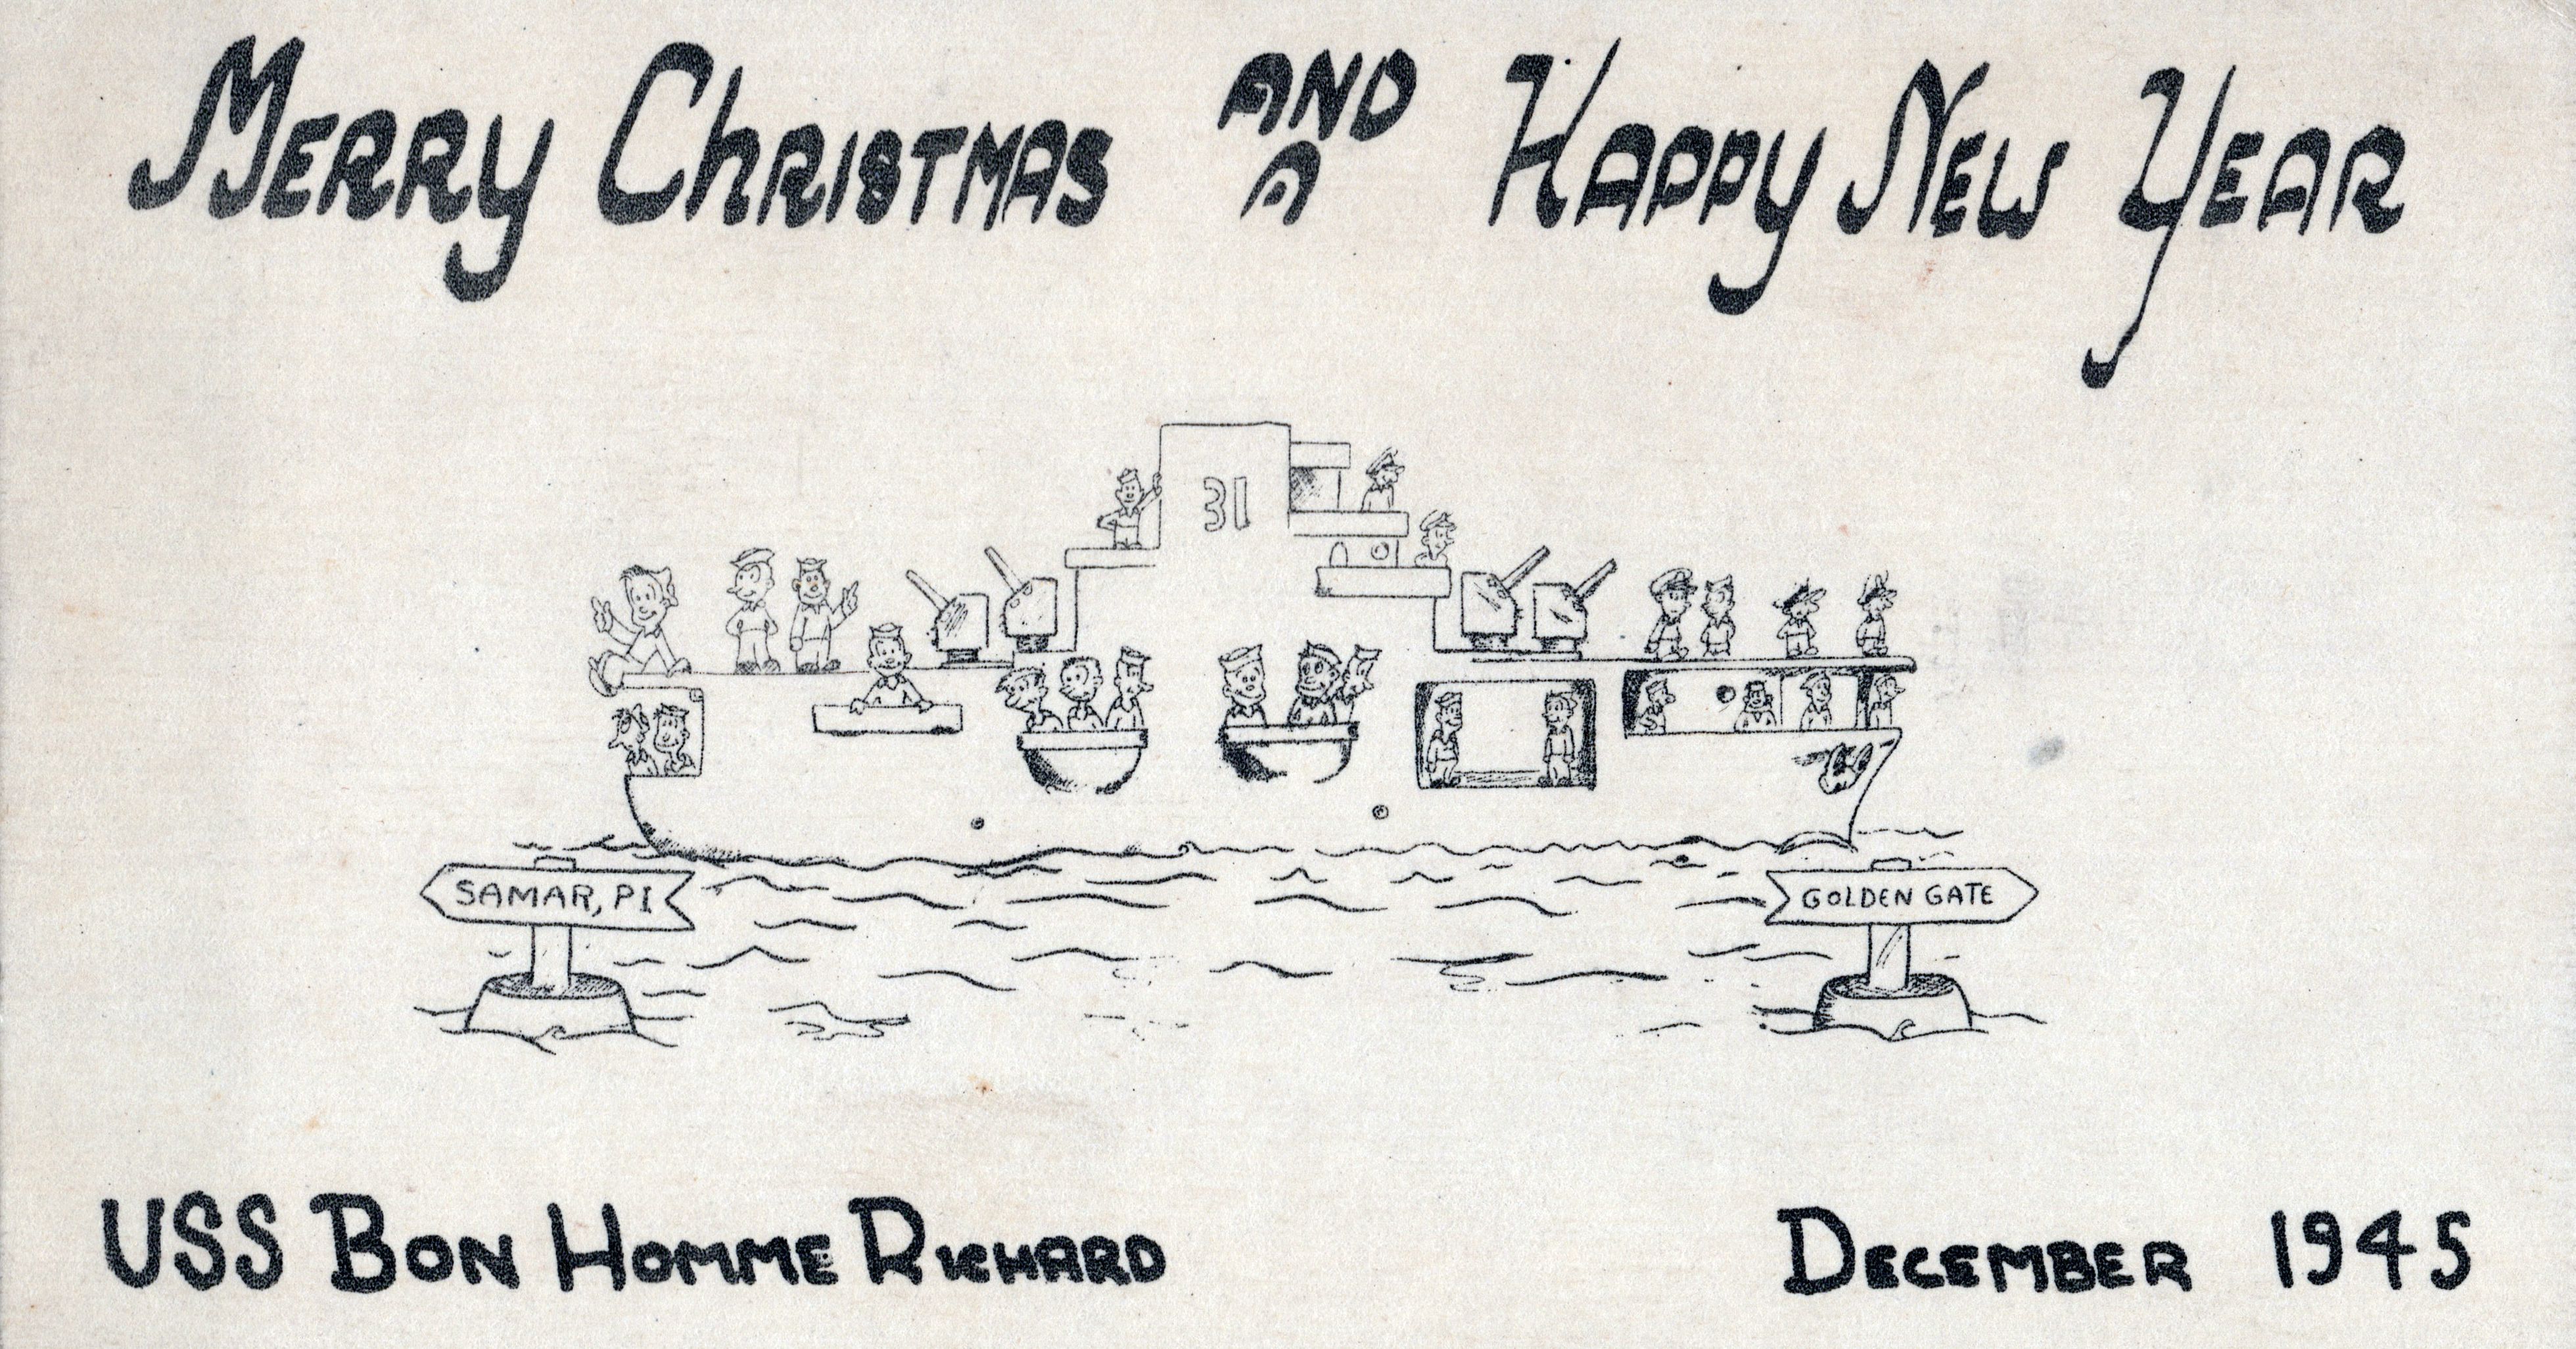 Merry Christmas AND A Happy New Year
31
SAMAR, PI
GOLDEN GATE
USS Bon Homme Richard
December 1945